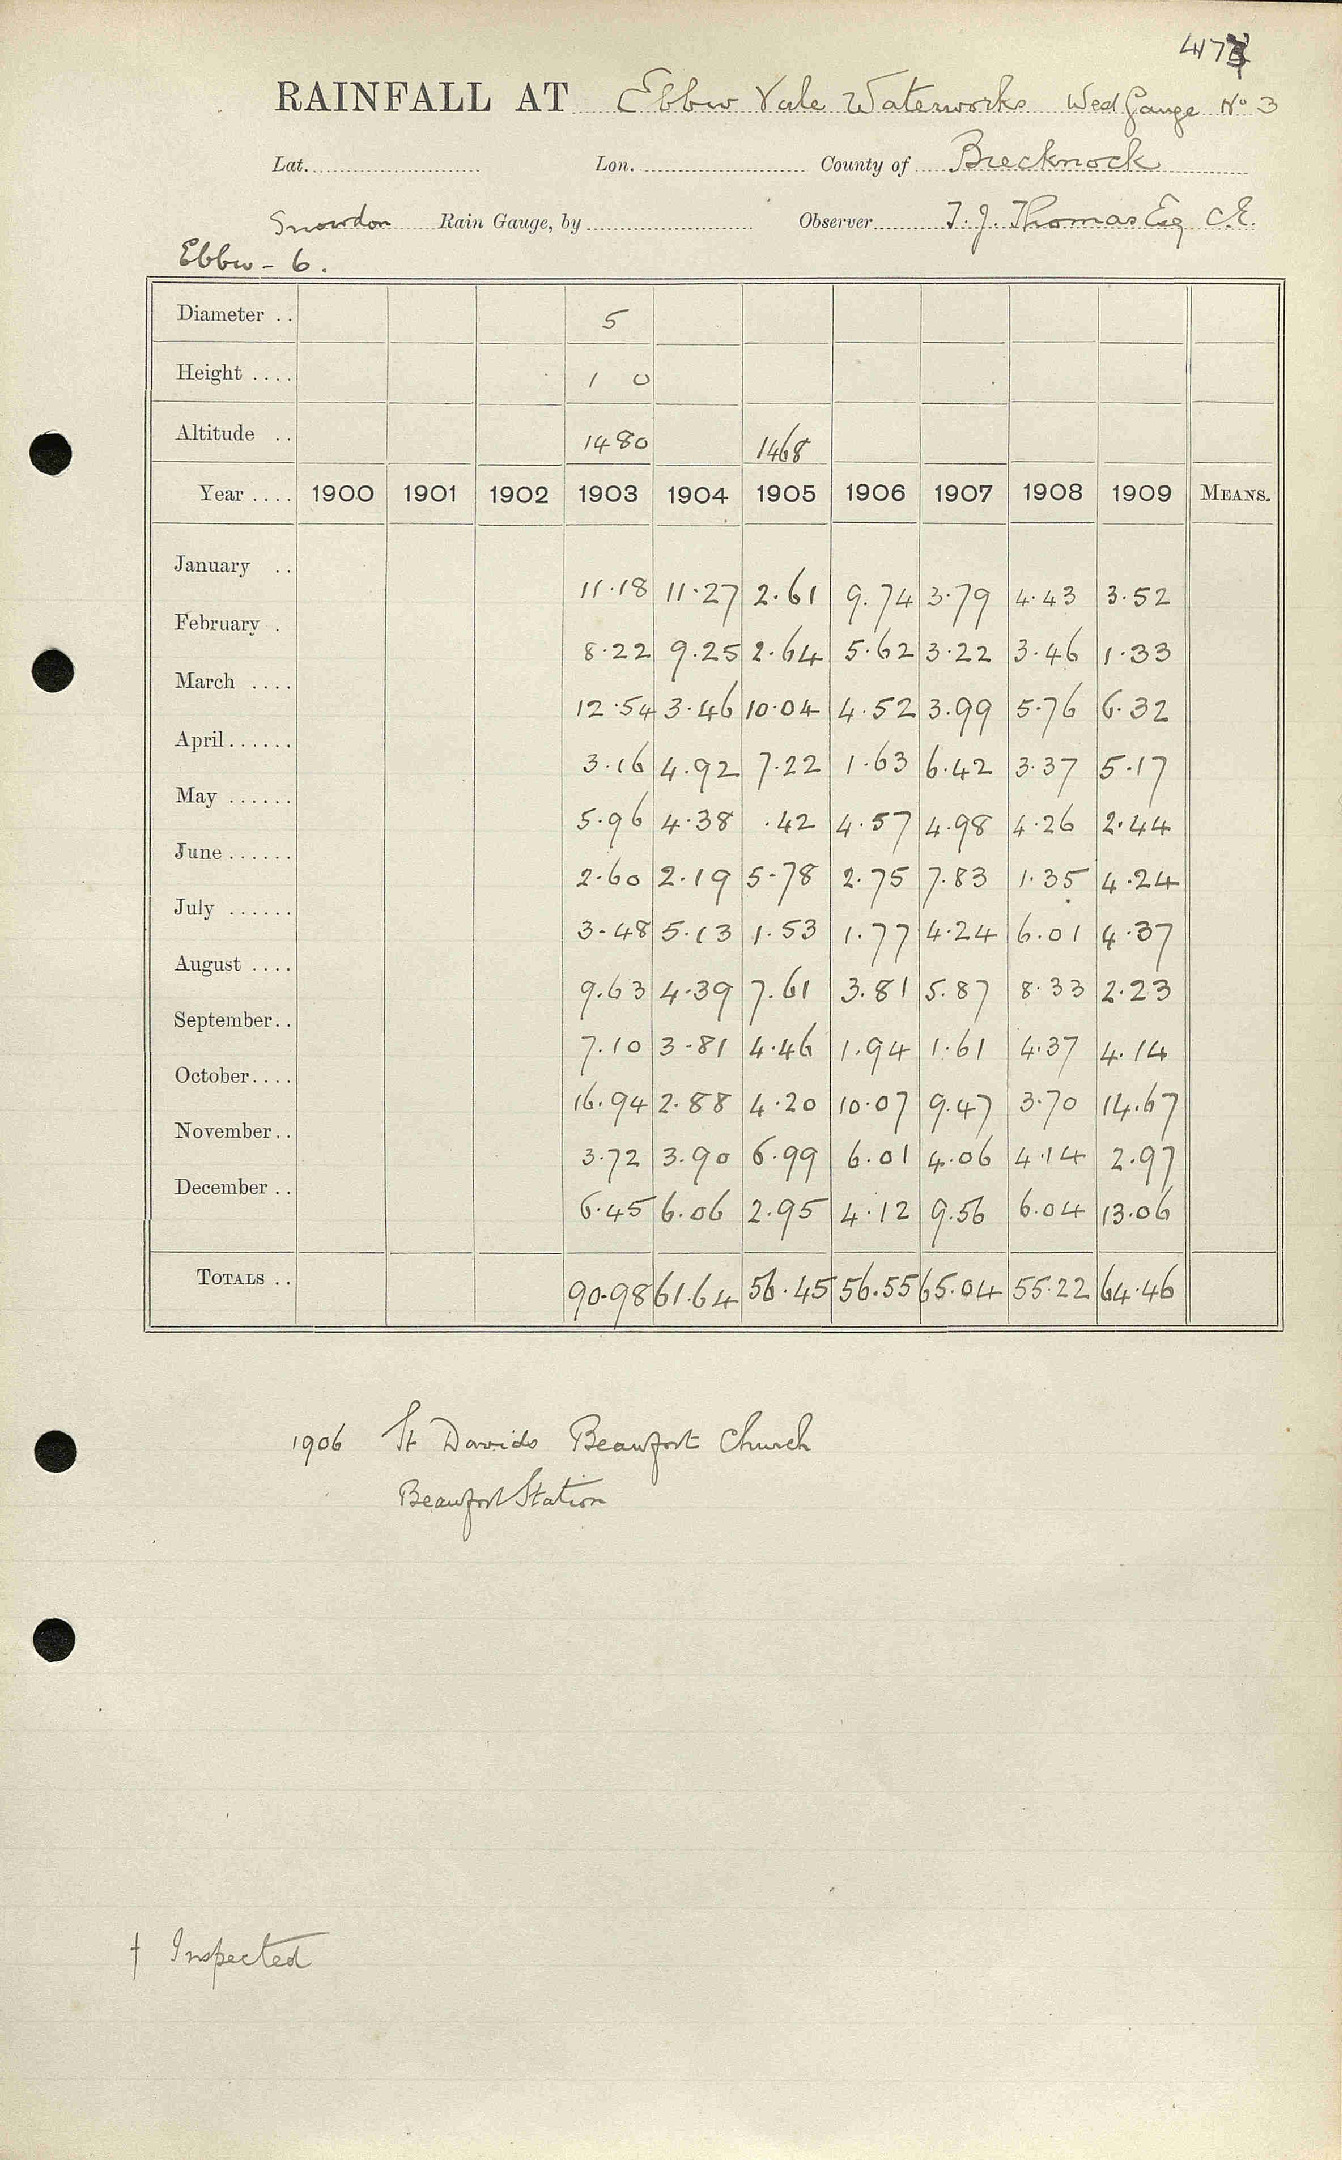 417
RAINFALL AT Ebbw Vale Waterworks Wed Gauge No 3
Lat. Lon. County of Brecknock
Snowdon Rain Gauge, by Observer T. J. Thomas Esq C.E.
Ebbw - 6.
Diameter .. 5
Height .... 1 0
Altitude .. 1480 1468
Year .... 1900 1901 1902 1903 1904 1905 1906 1907 1908 1909 MEANS.
January .. 11.18 11.27 2.61 9.74 3.79 4.43 3.52
February . 8.22 9.25 2.64 5.62 3.22 3.46 1.33
March .... 12.54 3.46 10.04 4.52 3.99 5.76 6.32
April...... 3.16 4.92 7.22 1.63 6.42 3.37 5.17
May ...... 5.96 4.38 .42 4.57 4.98 4.26 2.44
June...... 2.60 2.19 5.78 2.75 7.83 1.35 4.24
July ...... 3.48 5.13 1.53 1.77 4.24 6.01 4.37
August .... 9.63 4.39 7.61 3.81 5.87 8.33 2.23
September.. 7.10 3.81 4.46 1.94 1.61 4.37 4.14
October.... 16.94 2.88 4.20 10.07 9.47 3.70 14.67
November.. 3.72 3.90 6.99 6.01 4.06 4.14 2.97
December .. 6.45 6.06 2.95 4.12 9.56 6.04 13.06
TOTALS .. 90.98 61.64 56.45 56.55 65.04 55.22 64.46
1906 St Davids Beaufort Church
Beaufort Station
† Inspected